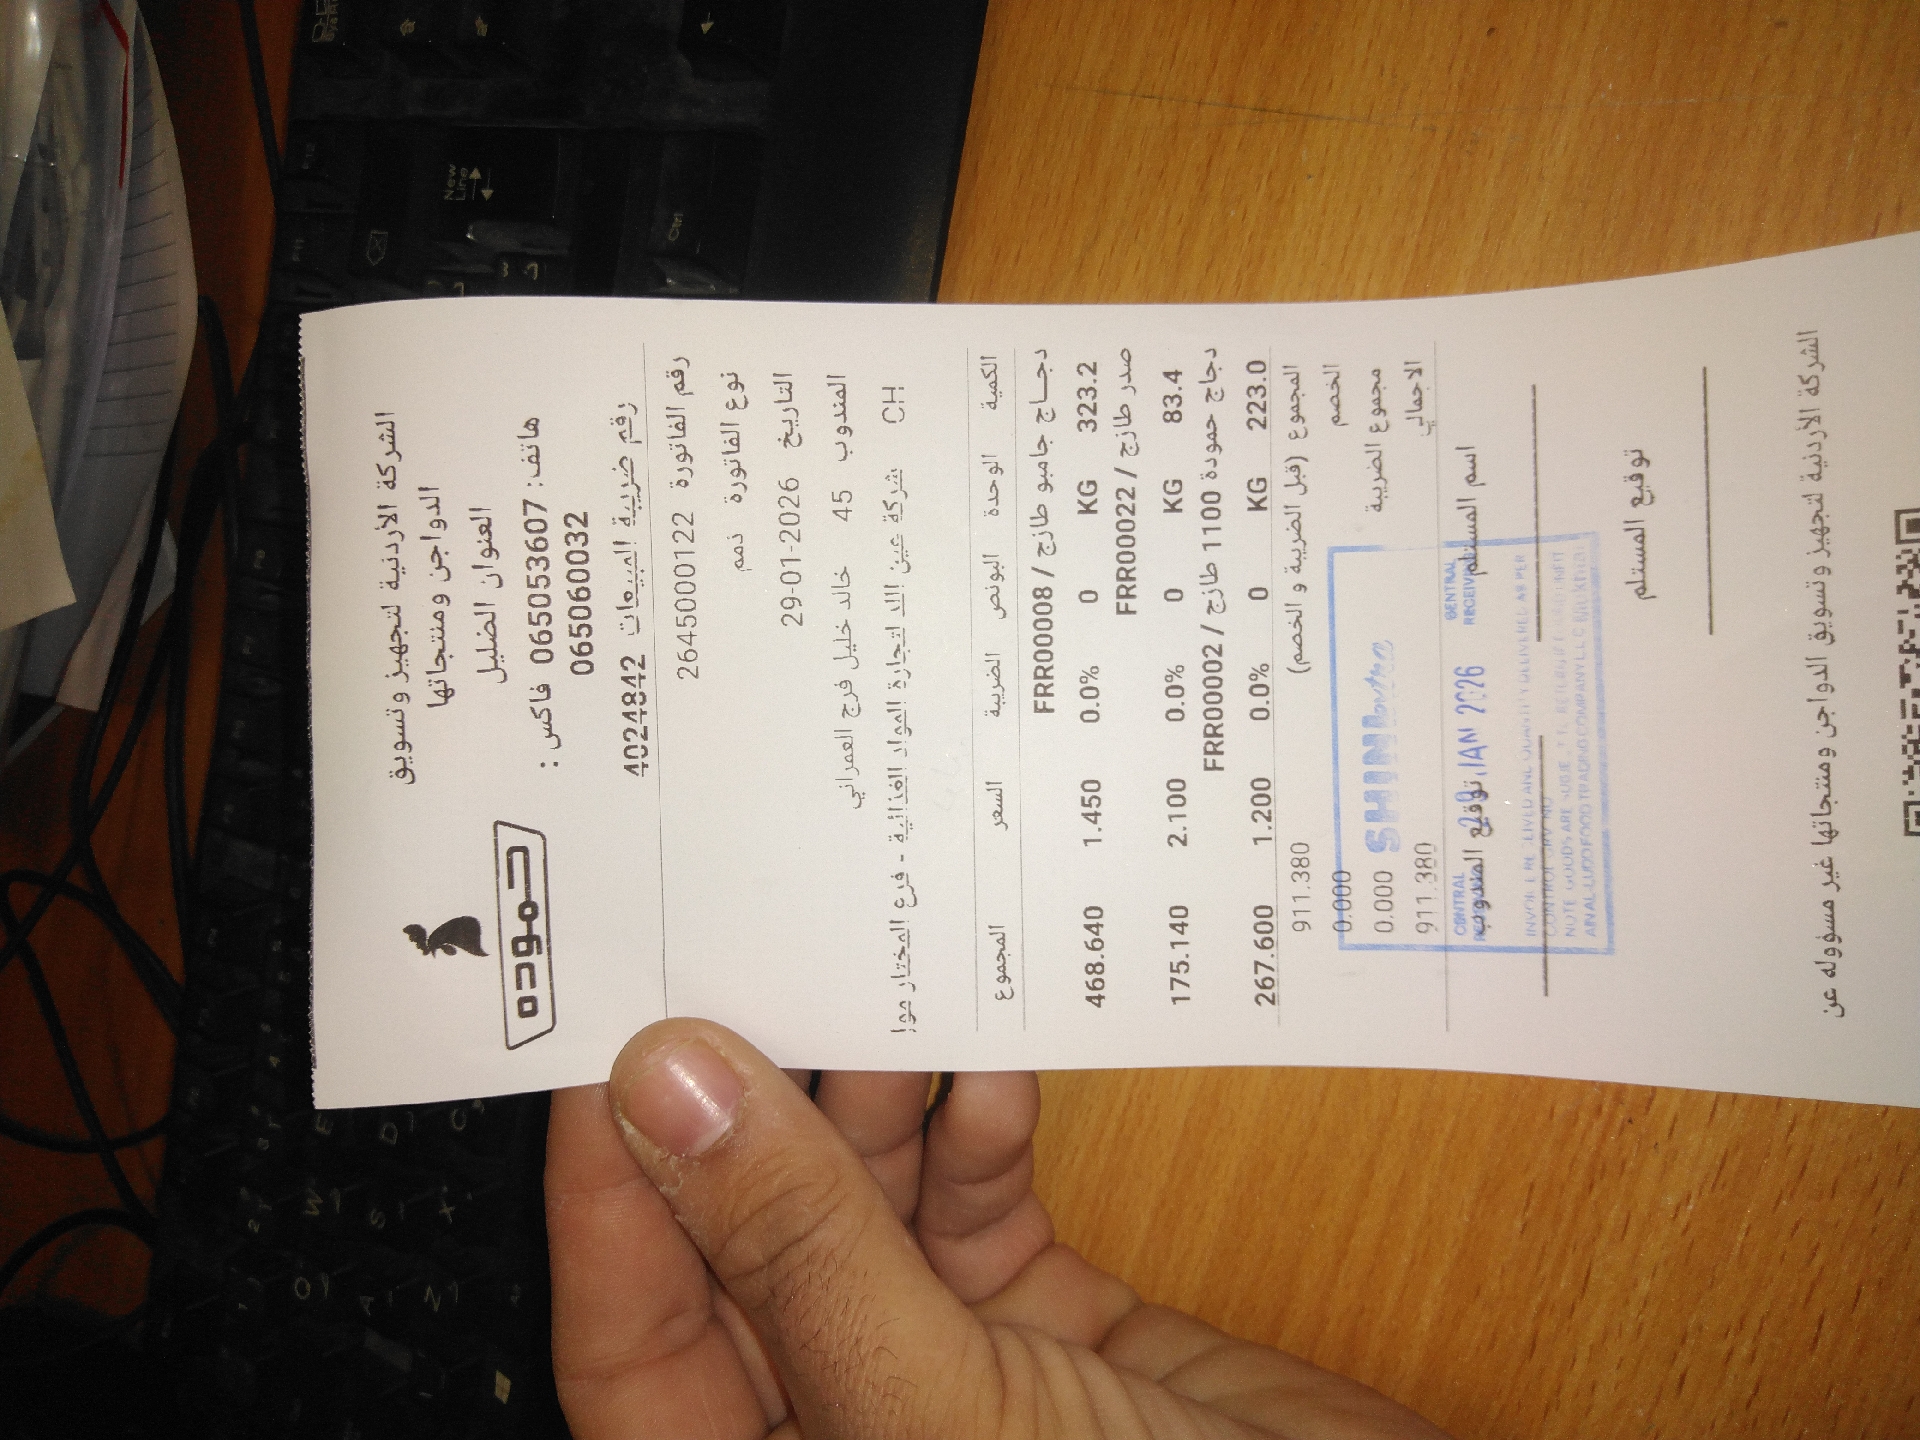 حموده
الشركة الأردنية لتجهيز وتسويق
الدواجن ومنتجاتها
العنوان الضليل
هاتف: 065053607 فاكس :
065060032
رقم ضريبة المبيعات 4024842
رقم الفاتورة 26450000122
نوع الفاتورة ذمم
التاريخ 29-01-2026
المندوب 45 خالد خليل فرج العمراني
CH شركة عين اللد لتجارة المواد الغذائية - فرع المختار مول
الكمية الوحدة البونص الضريبة السعر المجموع
دجاج جامبو طازج / FRR00008
323.2 KG 0 0.0% 1.450 468.640
صدر طازج / FRR00022
83.4 KG 0 0.0% 2.100 175.140
دجاج حمودة 1100 طازج / FRR00002
223.0 KG 0 0.0% 1.200 267.600
المجموع (قبل الضريبة و الخصم) 911.380
الخصم 0.000
مجموع الضريبة 0.000
الاجمالي 911.380
اسم المستلم توقيع المندوب
JAN 2026
توقيع المستلم
الشركة الأردنية لتجهيز وتسويق الدواجن ومنتجاتها غير مسؤوله عن
New Line
Ctrl